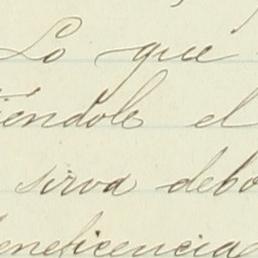 Lo que
iéndole el
sirva debo
beneficencia